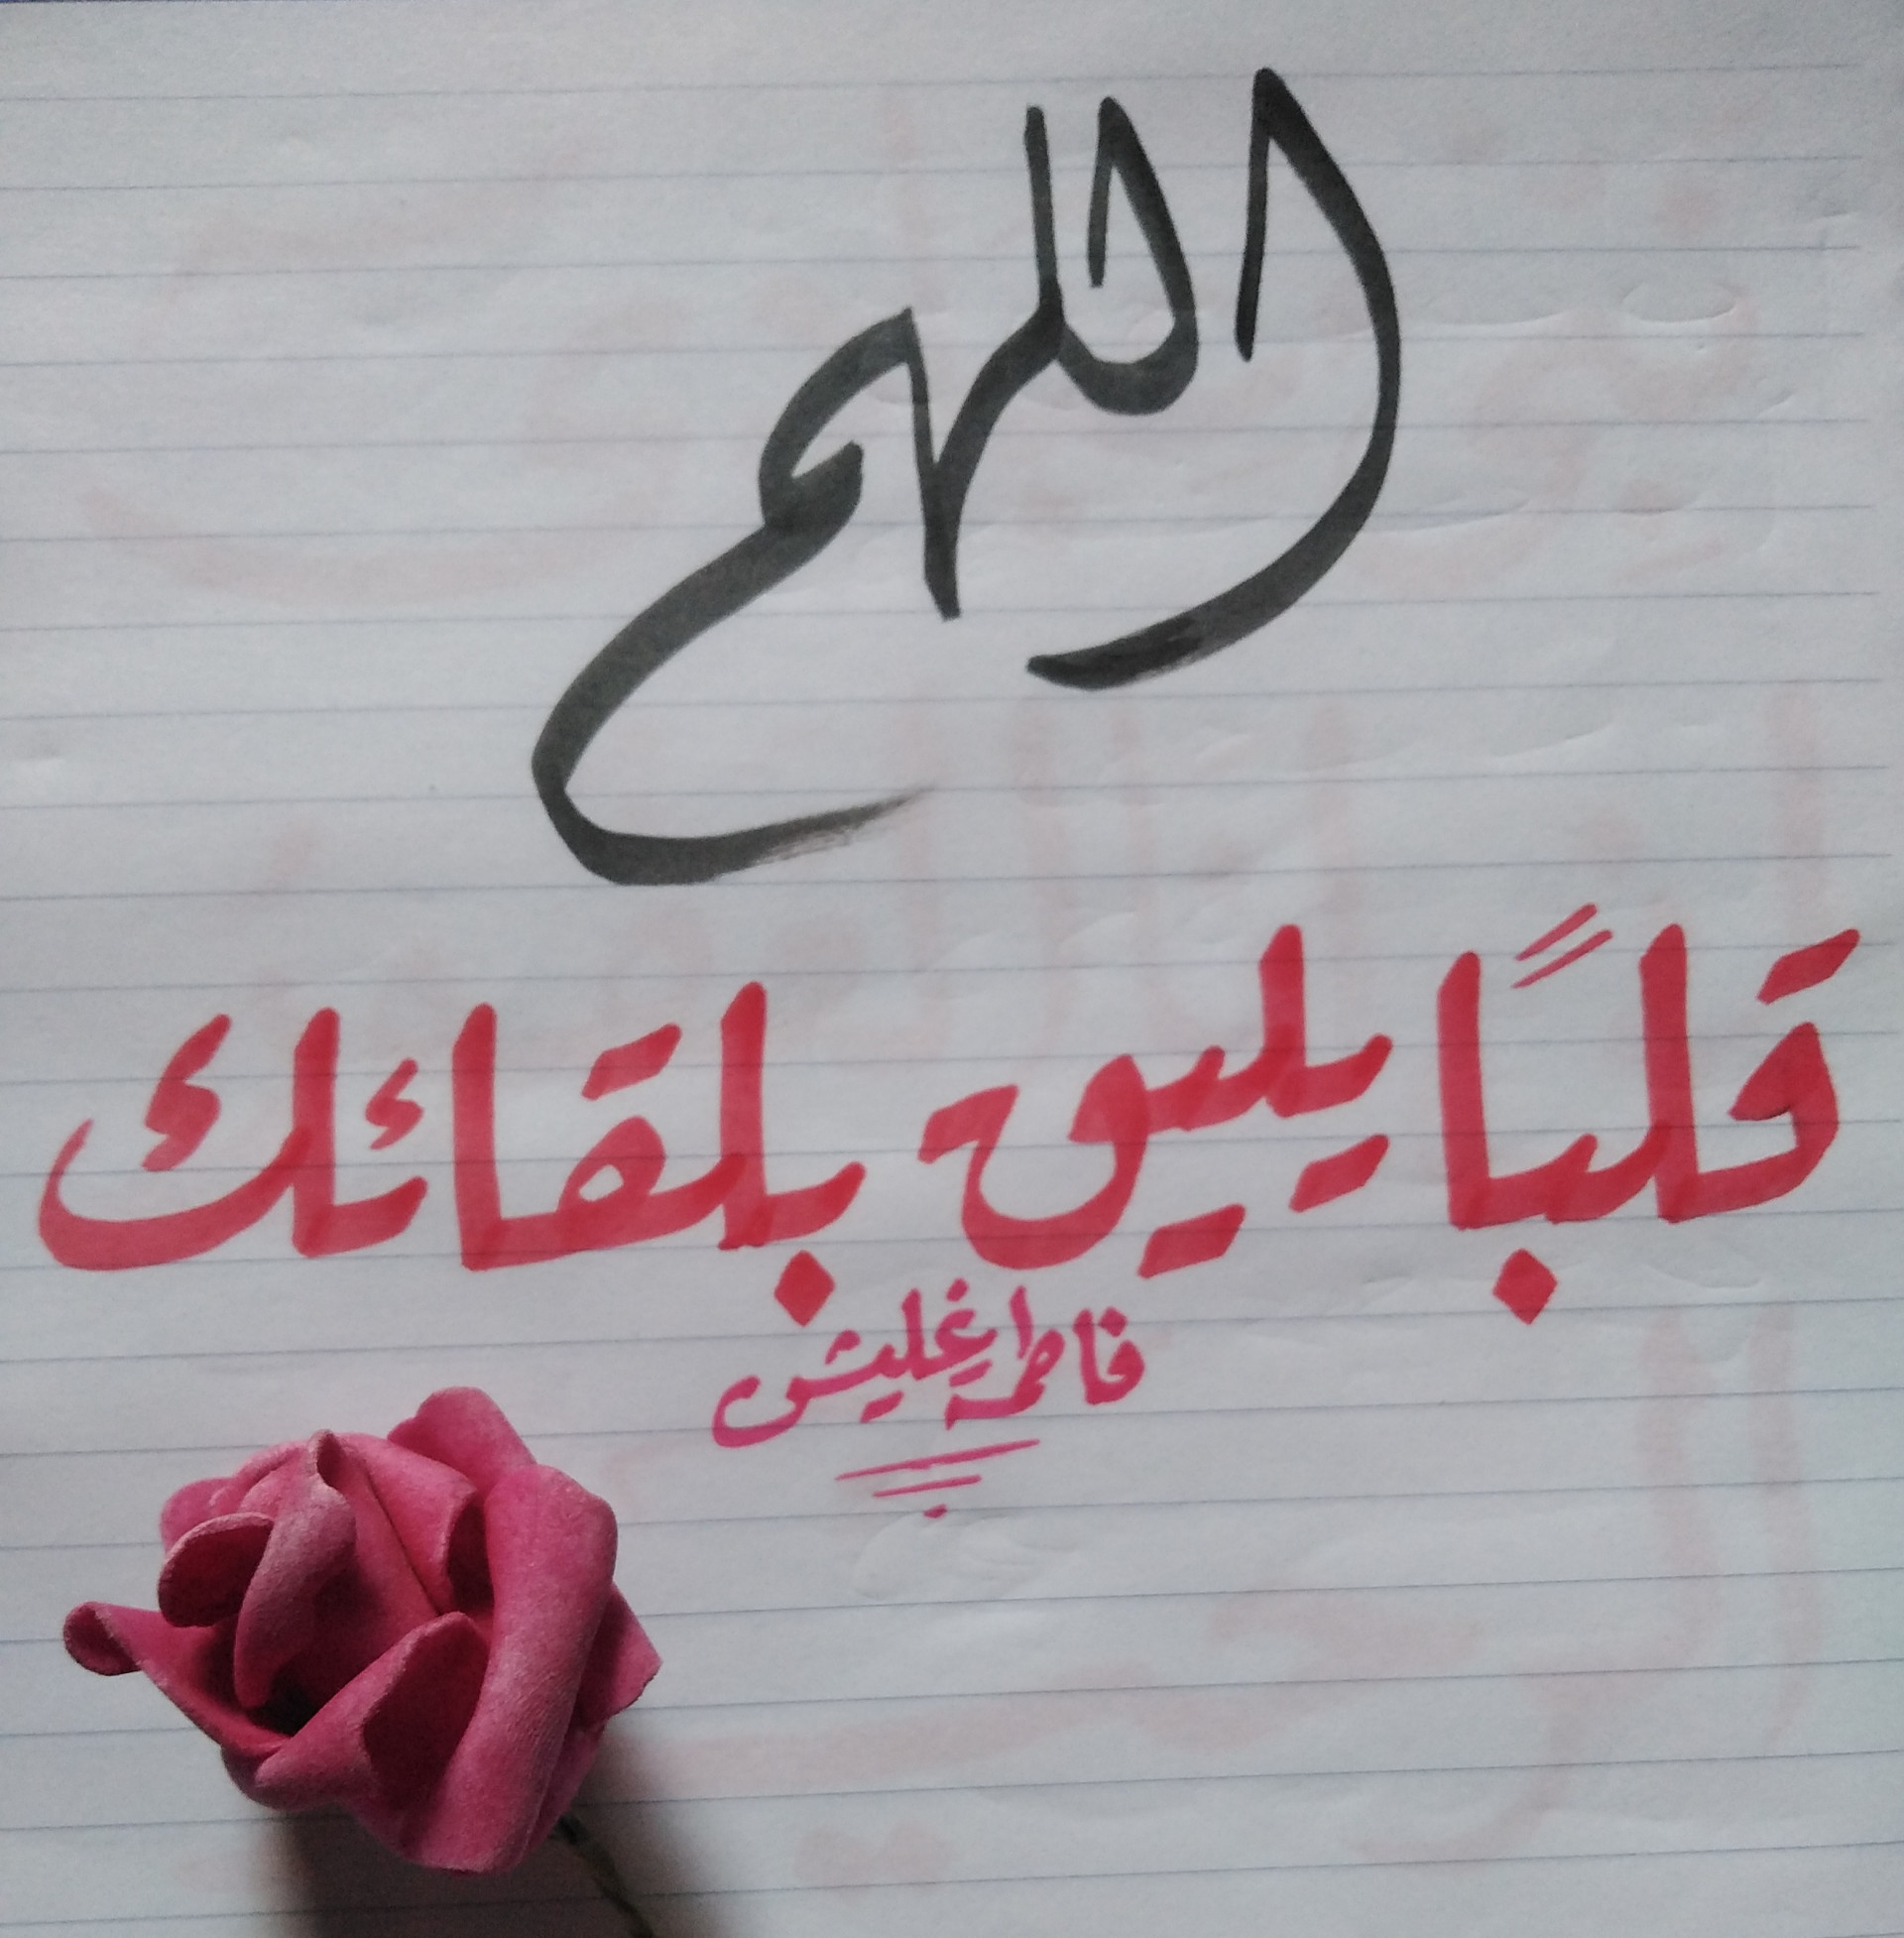 اللهم
قلبًا يليق بلقائك
فاطمة يغليش